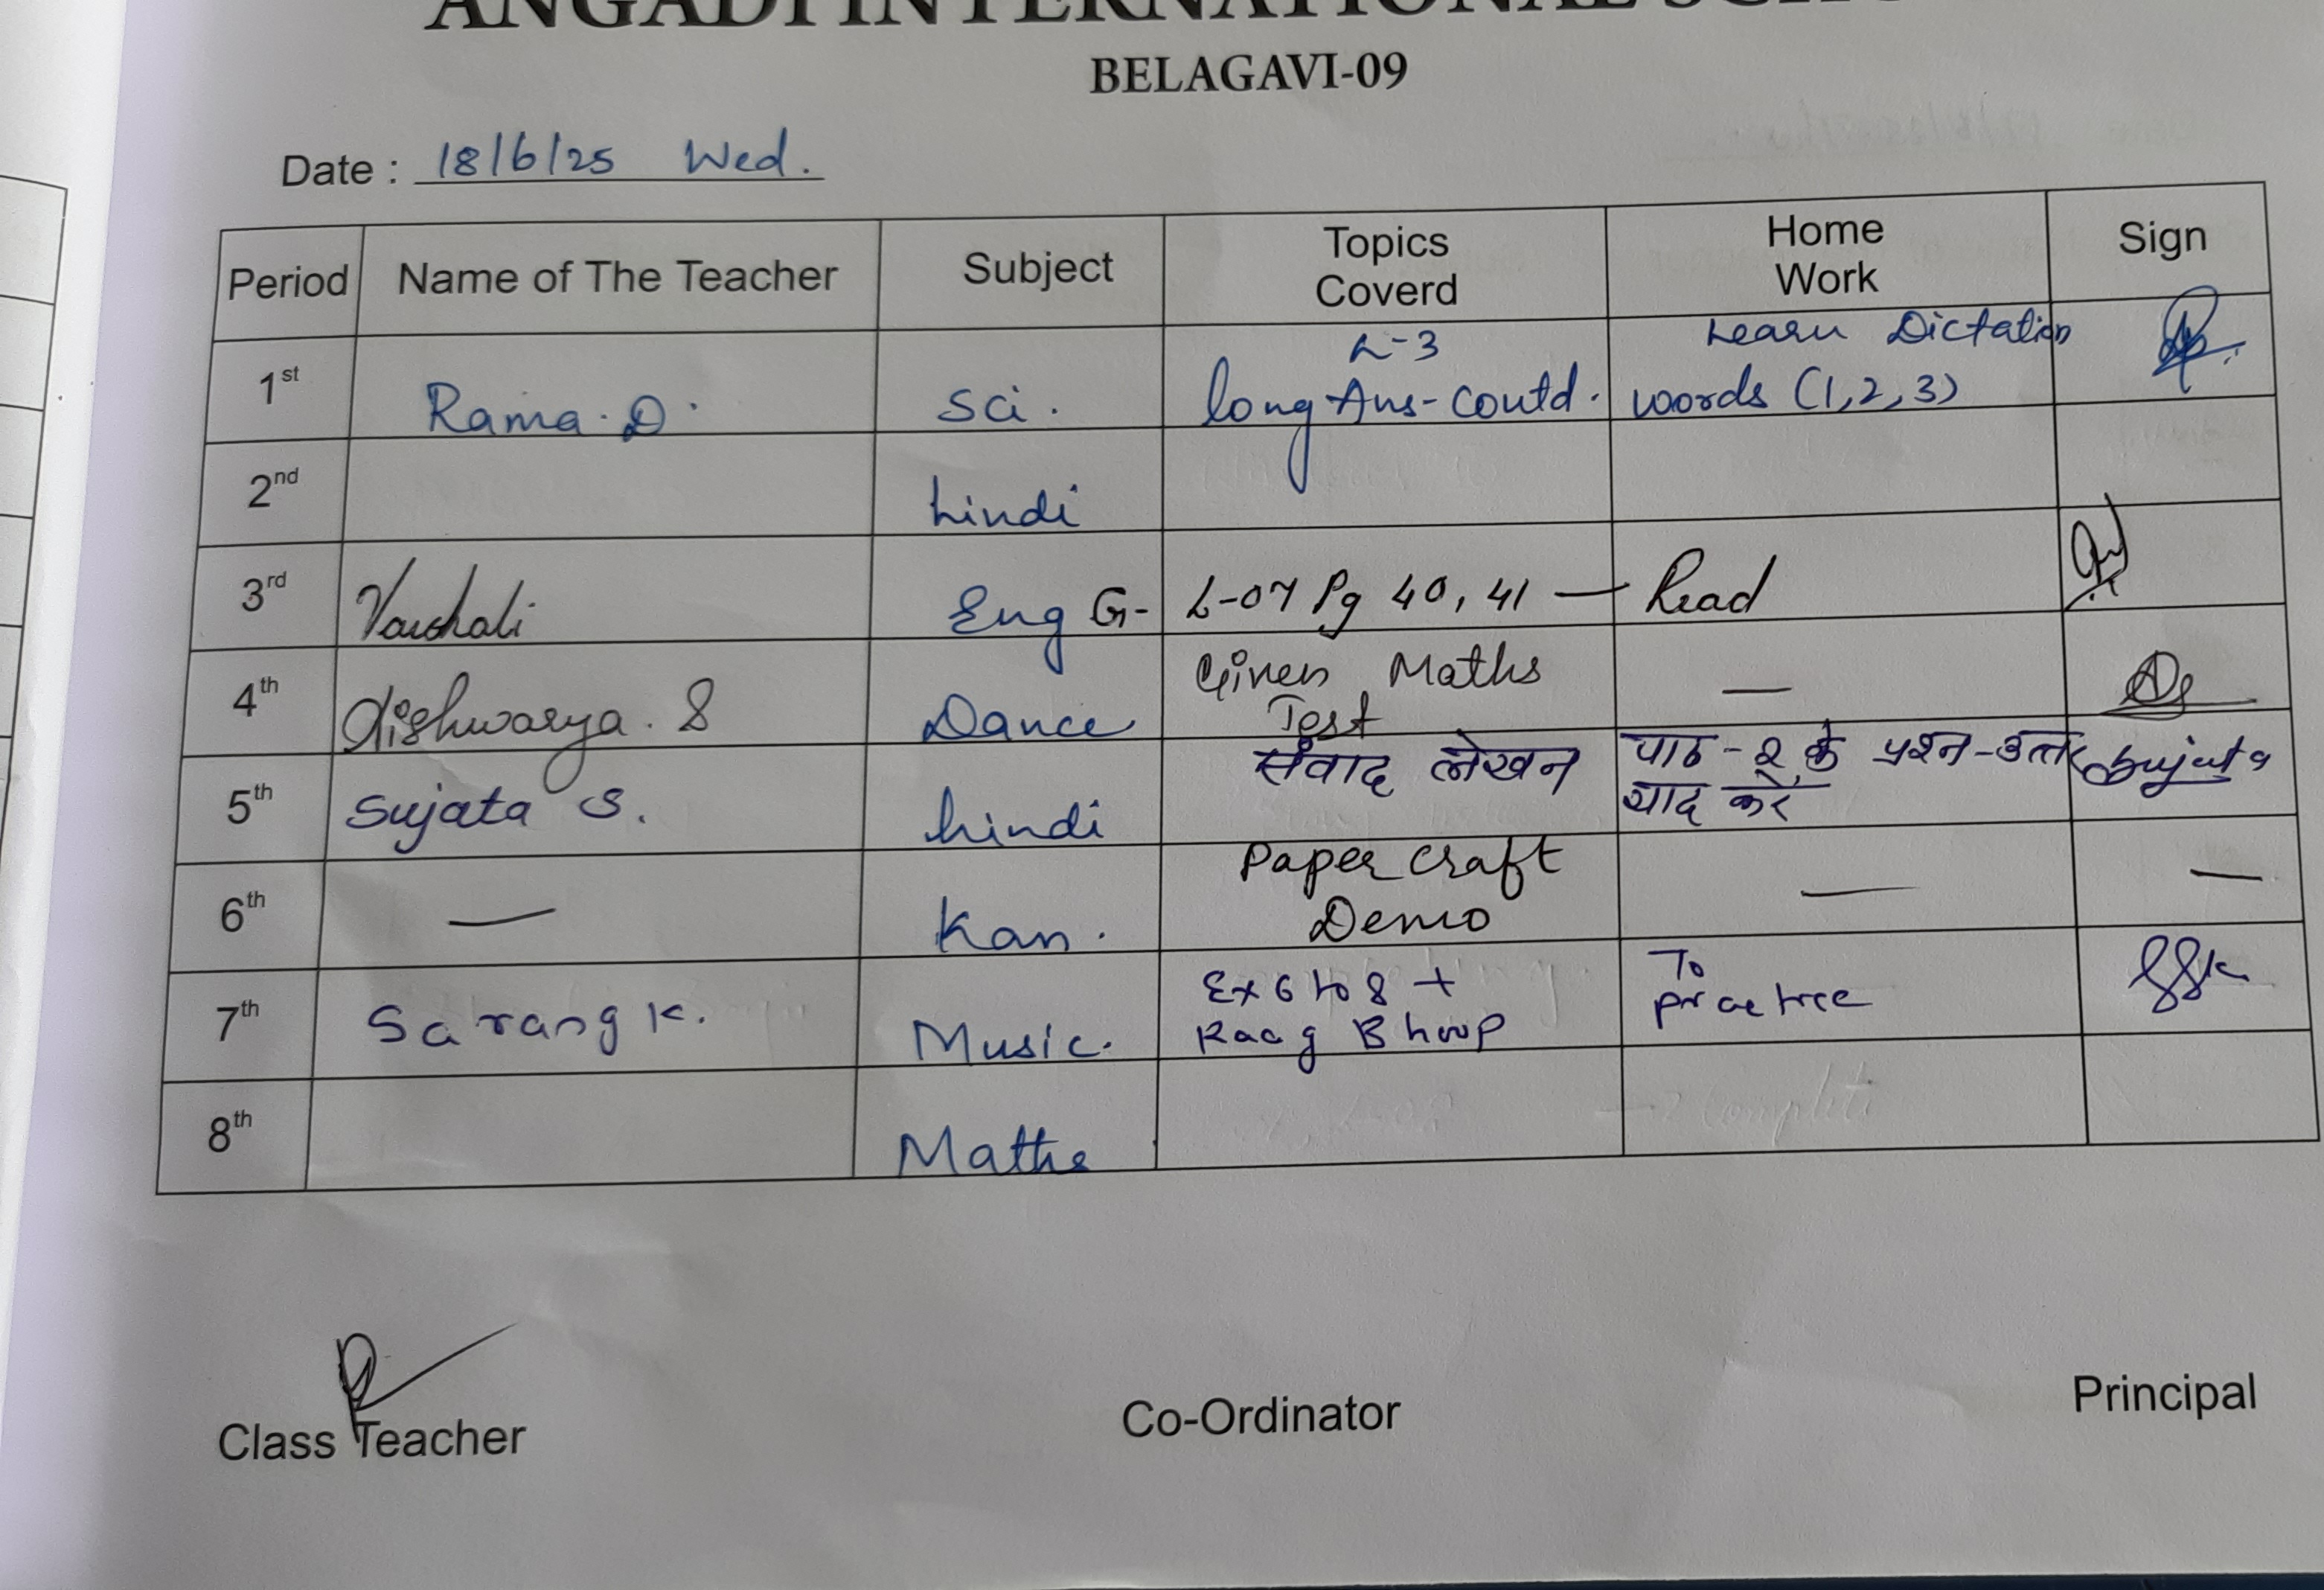 ANGADI INTERNATIONAL SCHO
BELAGAVI-09
Date : 18/6/25 Wed.
Period Name of The Teacher Subject Topics Coverd Home Work Sign
1st Rama. D. Sci. L-3 Learn Dictation
long Ans- Contd. words (1,2,3)
2nd hindi
3rd Vaishali Eng G- L-07 Pg 40, 41 — Read
4th Aishwarya. S Dance Given Maths —
Test
5th Sujata S. hindi संवाद लेखन पाठ - २ के प्रश्न-उत्तर Sujata
याद करें
6th — Kan. Paper Craft — —
Demo
7th Sarang K. Music. Ex 6 to 8 + To SSK
Raag Bhoop practice
8th Maths
Class Teacher Co-Ordinator Principal